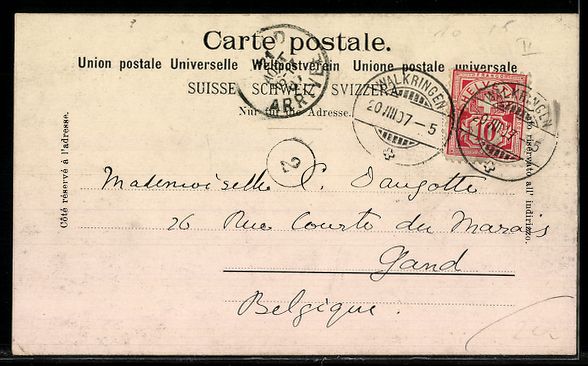 Carte postale.
Union postale Universelle Weltpostverein Unione postale universale
SUISSE SCHWEIZ SVIZZERA
Nur für die Adresse.
ARRIVÉE
WALKRINGEN
20.VIII.07.-5
10
Côté réservé à l'adresse.
Mademoiselle C. Daugotte
26 Rue Courte du Marais
Gand
Belgique.
riservato all' indirizzo.